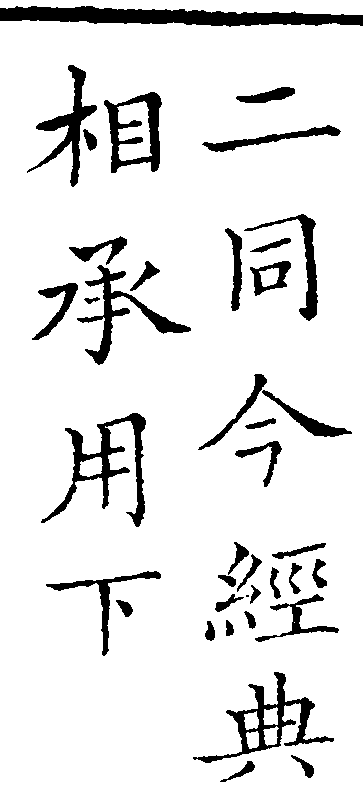 二同今經典
相承用下